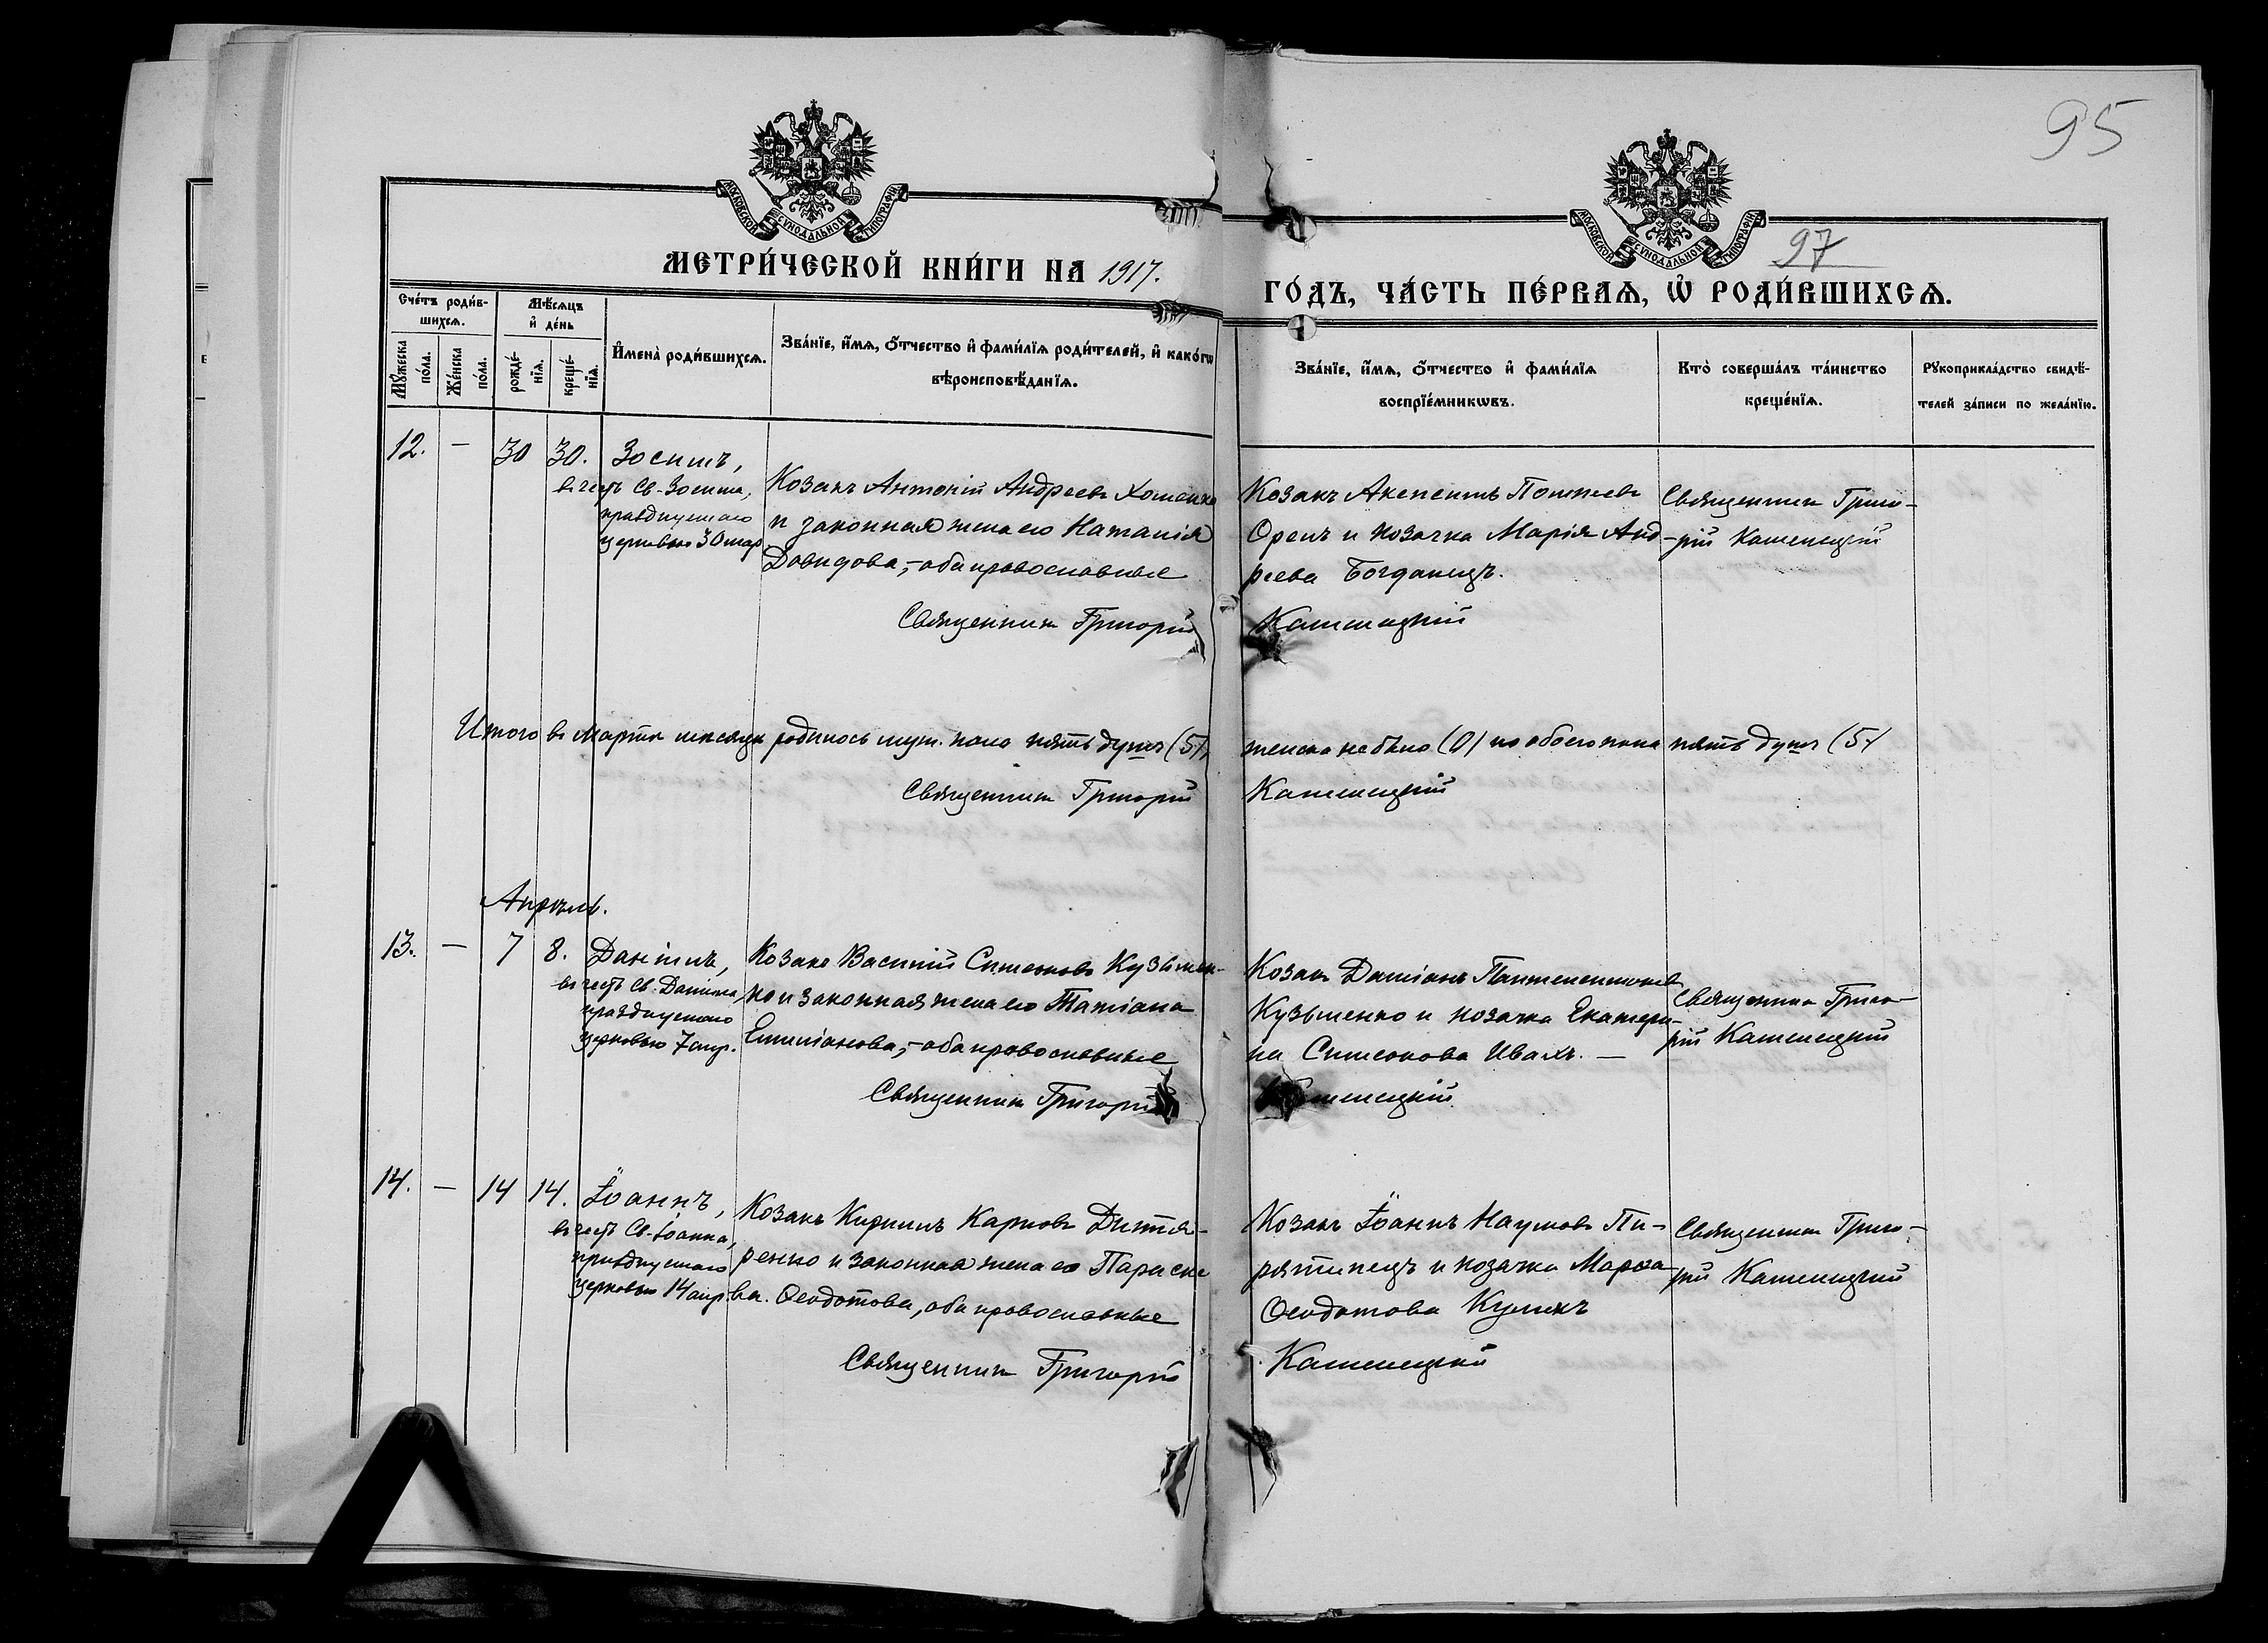 95
МОСКОВСКОЙ СѴНОДАЛЬНОЙ ТИПОГРАФІИ
МОСКОВСКОЙ СѴНОДАЛЬНОЙ ТИПОГРАФІИ
97
МЕТРИ́ЧЕСКОЙ КНИ́ГИ НА 1917.
ГО́ДЪ, ЧА́СТЬ ПЕ́РВАѦ, Ѡ҆ РОДИ́ВШИХСѦ.
Сче́тъ роди́в-
шихсѧ.
Мѣ́сѧцъ
и҆ де́нь
Мꙋ́жеска
по́ла.
Же́нска
по́ла.
рожде́-
нїѧ.
креще́-
нїѧ.
И҆мена̀ роди́вшихсѧ.
Зва́нїе, и҆́мѧ, ѻ҆́тчество и҆ фами́лїѧ роди́телей, и҆ како́гѡ
вѣроисповѣ́данїѧ.
Зва́нїе, и҆́мѧ, ѻ҆́тчество и҆ фами́лїѧ
воспрїе́мникѡвъ.
Кто̀ соверша́лъ та́инство
креще́нїѧ.
Рꙋкоприкла́дство свидѣ́-
телей за́писи по жела́нїю.
12. — 30 30. Зосимъ,
въ честь Св. Зосима,
празднуемаго
церковью 30 мар.
Козакъ Антоній Андреевъ Хоменко
и законная жена его Наталія
Довидова, – оба православные
Священник Григорій
Козакъ Акепсимъ
Орелъ и козачка Марія Анд-
реева Богданецъ.
Каменецкій
Священник Григо-
рій Каменецкій
Итого въ Мартѣ мѣсяцѣ родилось муж. пола пять душъ (5),
женска не было (0) но обоего пола пять душъ (5)
Священник Григорій
Каменецкій
Апрѣль.
13. — 7 8. Даніилъ,
въ честь Св. Даніила,
празднуемаго
церковью 7 апр.
Козакъ Василій Симеоновъ Кузьмен-
ко и законная жена его Татіана
Емиліанова, – оба православные
Священник Григорій
Козак Даміанъ Пантелеимоновъ
Кузьменко и козачка Екатери-
на Симеонова Ивахъ. —
Каменецкій
Священник Григо-
рій Каменецкій
14. — 14 14. Іоаннъ,
въ честь Св. Іоанна,
празднуемаго
церковью 14 апр.
Козакъ Кириллъ Карповъ Дитя-
ренко и законная жена его Параске
ва Ѳеодотова, оба православные
Священник Григорій
Козакъ Іоаннъ Наумовъ Пи-
рятинецъ и козачка Марѳа
Ѳеодотова Куликъ
Каменецкій
Священник Григо-
рій Каменецкій